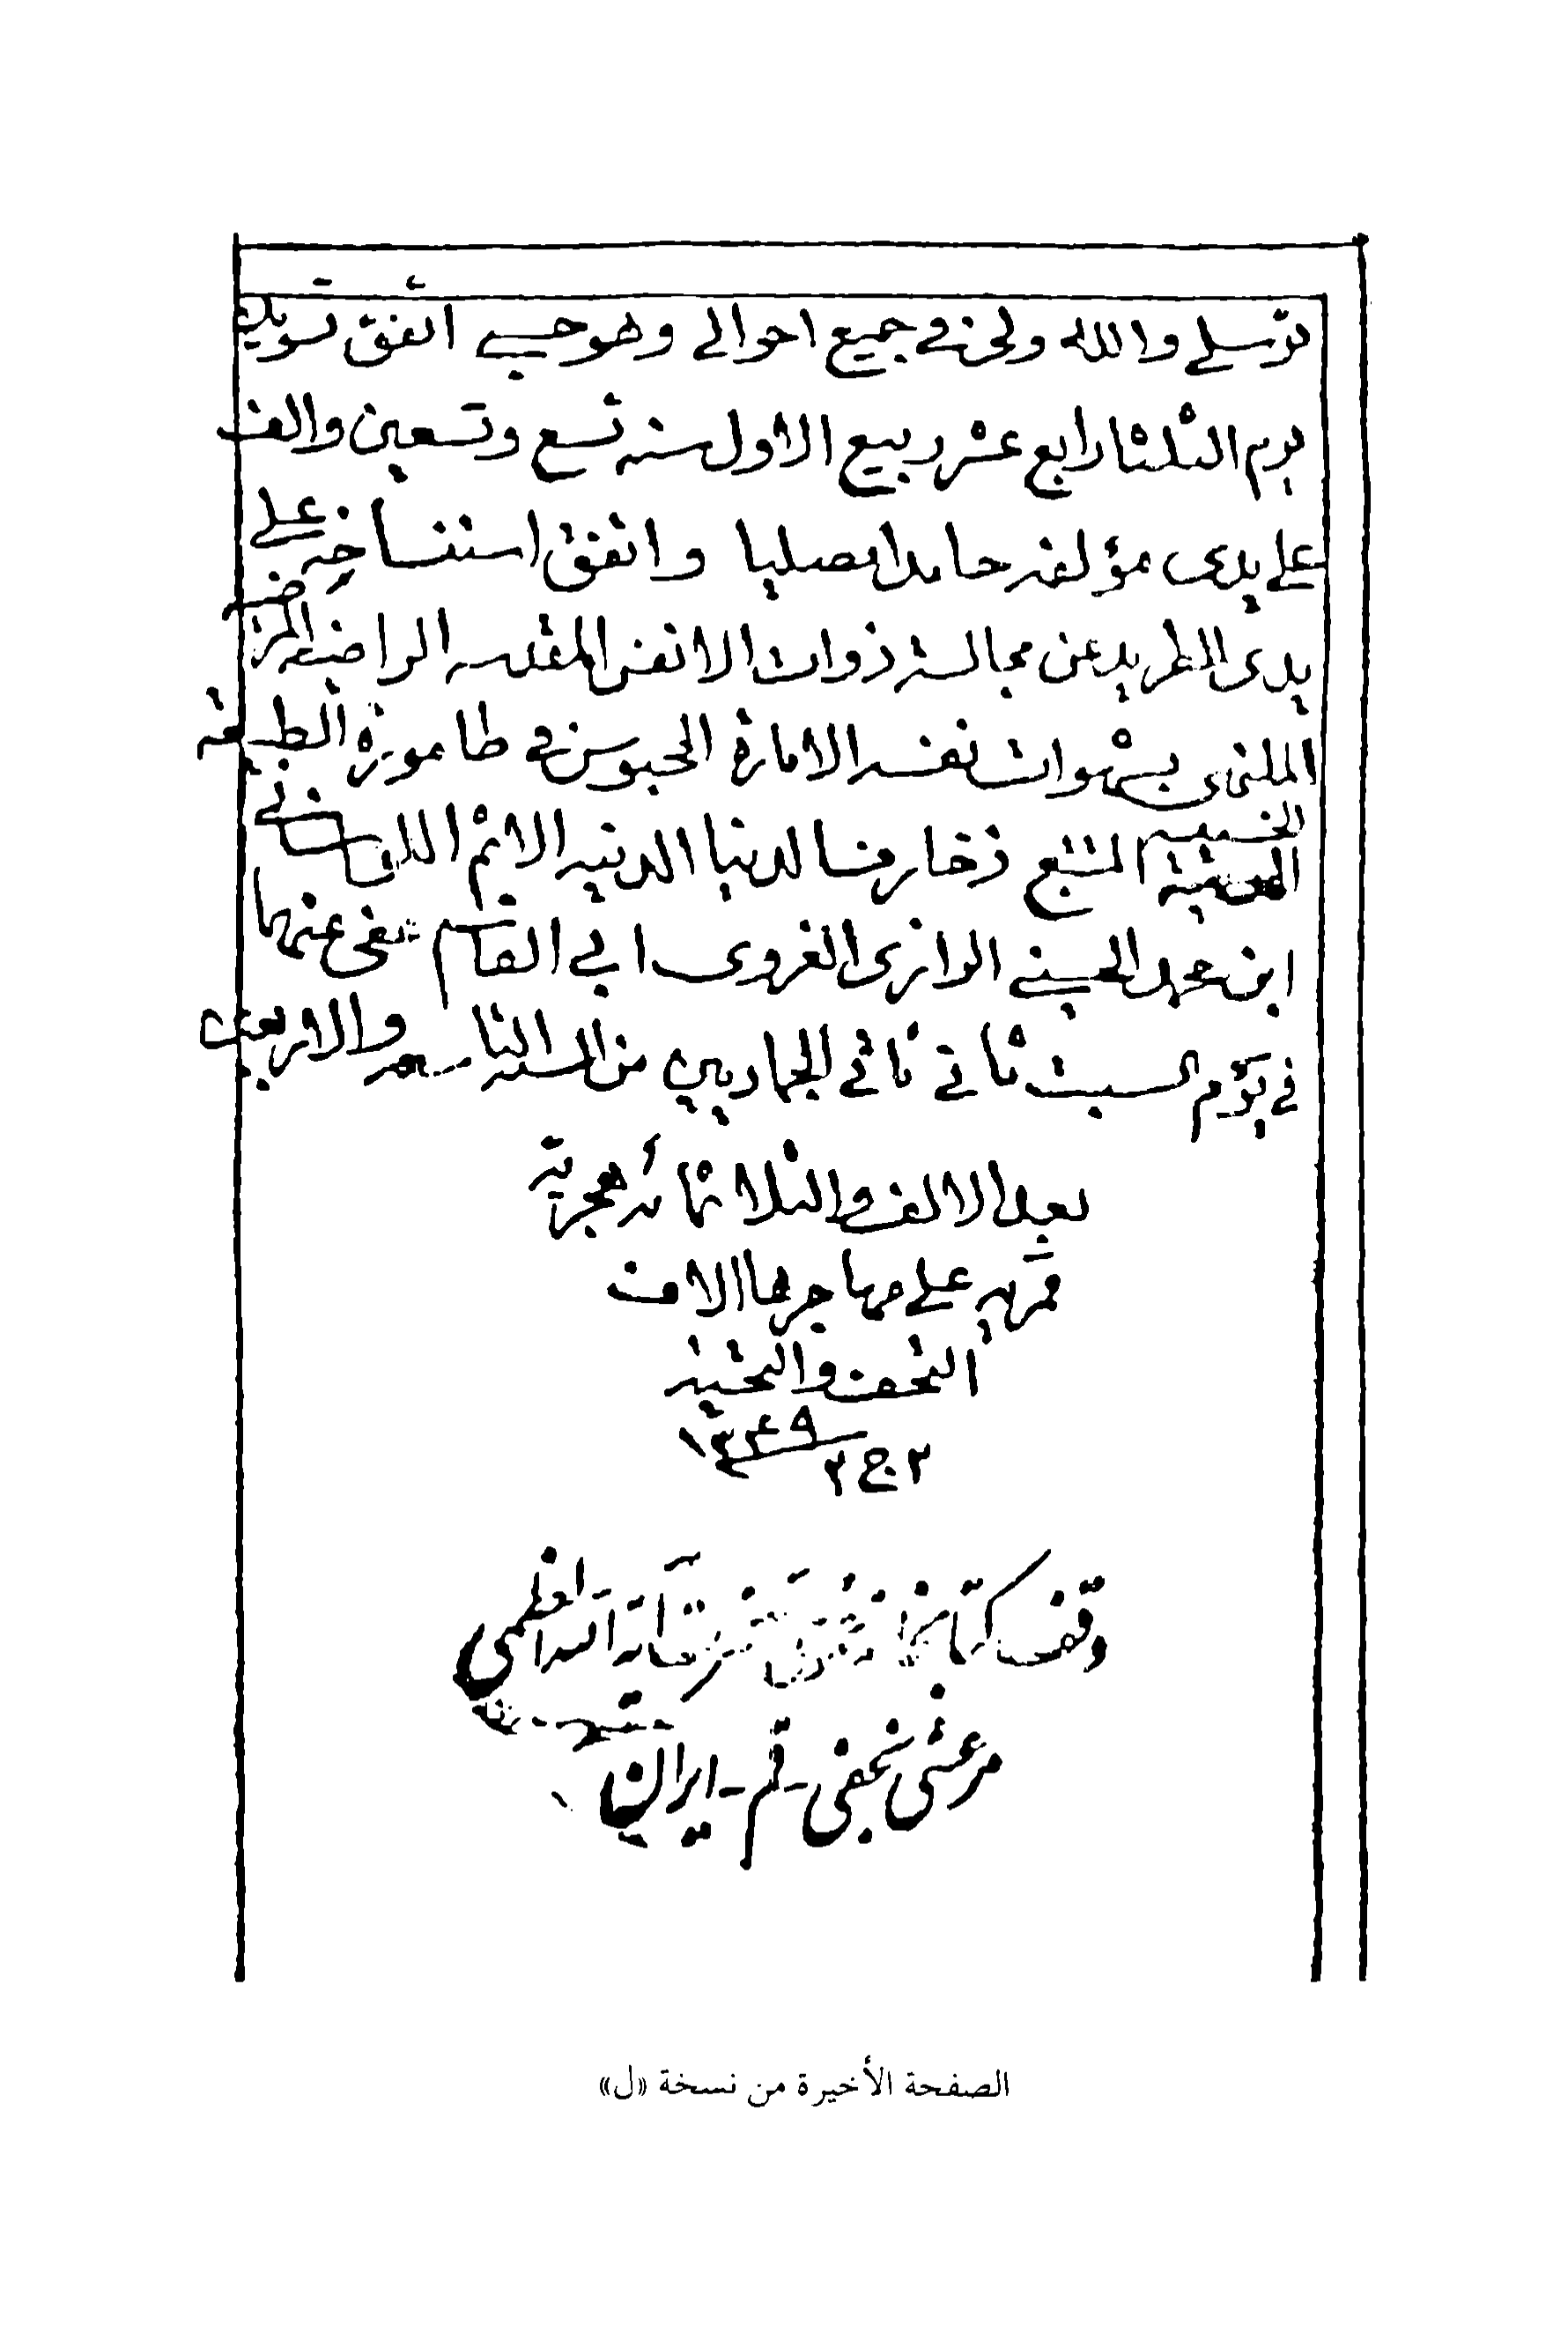 توسلي والله وليي في جميع احوالي وهو حسبي اتفق تسويده
يوم الثلثا رابع عشر ربيع الاول سنه تسع وتسعين والف
على يدى مؤلفه حامدا مصليا واتفق استنساخه على
يدى الطريد عن مجالسة ذوات الانفس المقدسه الراضيه المرضيه
الملتهى بشهوات نفسه الامارة المحبوس في طامورة الطبيعة
الخسيسه المتتبع زخارف الدنيا الدنيه الاثم اللاساني
ابن محمد الحسيني الرازى الغروى ابي القاسم عفى عنهما
في يوم السبت ثاني ثاني الجماديين من السنه التاسعه والاربعين
بعد الالف والثلاثمائه هجرية
قمريه على مهاجرها الاف
التحف والتحية
٢ ج ٢ ١٣٤٩
وقف كتابخانه عمومى حضرت آية الله العظمى
مرعشى نجفى - قم - ايران
الصفحة الأخيرة من نسخة «ل»